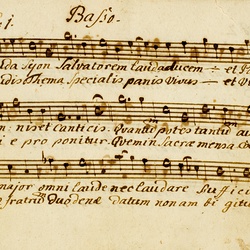 Basso.
da syon Salvatorem lauda ducem ÷ et
Thema specialis panis Vivus — et
niset canticis. Quantu potes tantu
e pro ponitur. Quem in Sacræ mensa
major omni laude nec laudare suffici
fratru duodenæ datum non am bi gitu